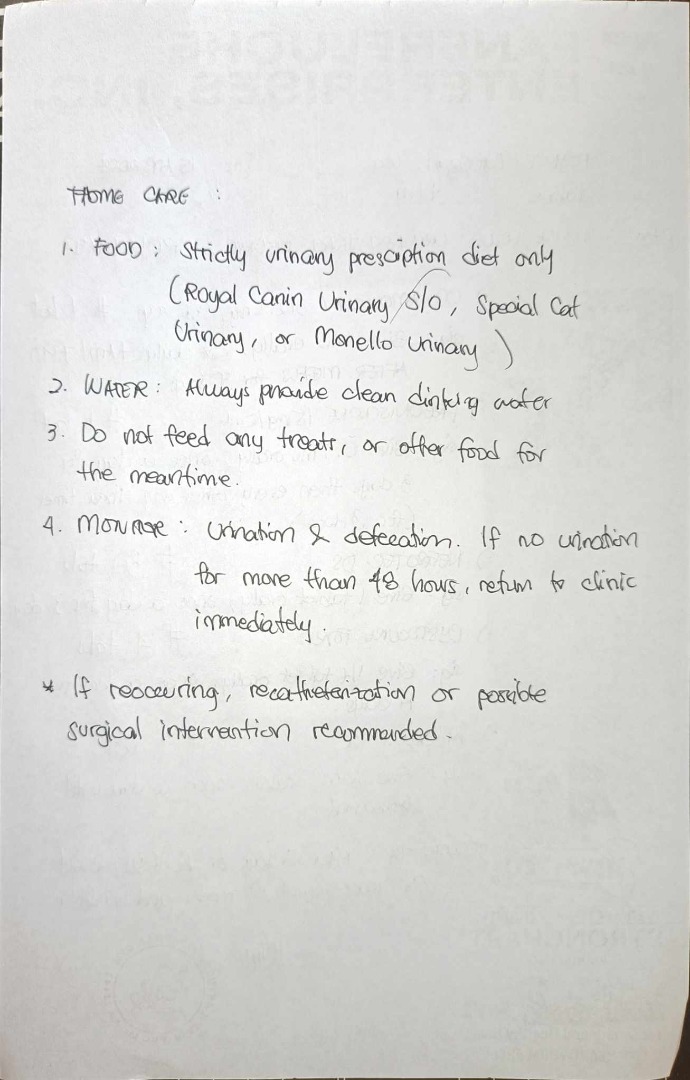 HOME CARE :
1. FOOD : Strictly urinary presciption diet only
(Royal Canin Urinary S/O, Special Cat
Urinary, or Monello Urinary )
2. WATER : Always provide clean dinking water
3. Do not feed any treats, or other food for
the meantime.
4. MONITOR : Urination & defecation. If no urination
for more than 48 hours, return to clinic
immediately.
* If reoccuring, recatheterization or possible
surgical intervention recommended.